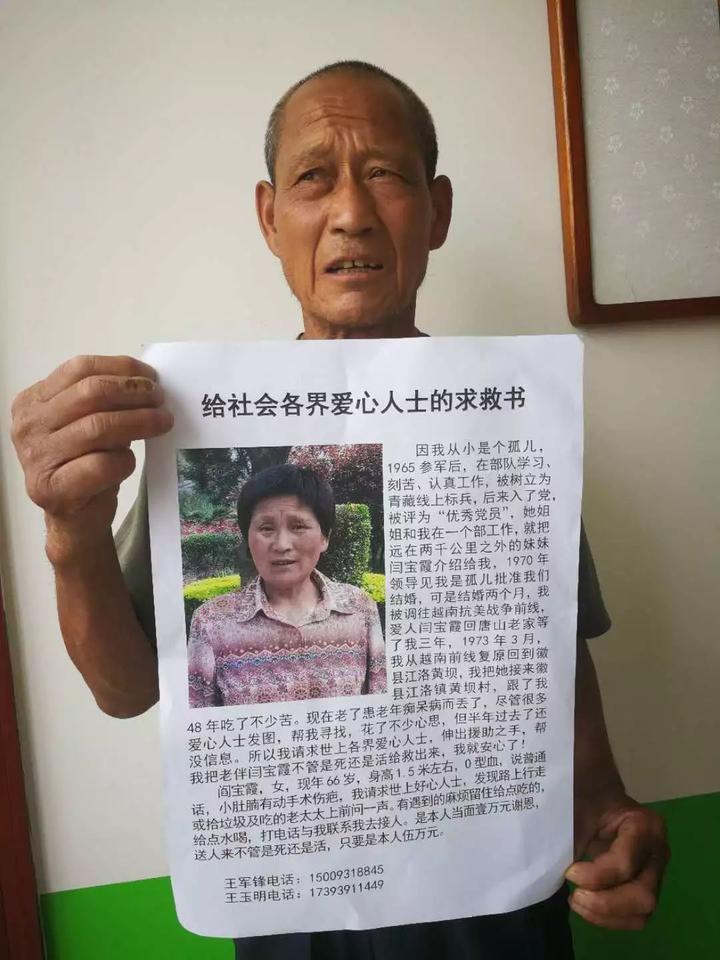 给社会各界爱心人士的求救书
因我从小是个孤儿，
1965 参军后，在部队学习、
刻苦、认真工作，被树立为
青藏线上标兵，后来入了党，
被评为“优秀党员”，她姐
姐和我在一个部工作，就把
远在两千公里之外的妹妹
闫宝霞介绍给我，1970 年
领导见我是孤儿批准我们
结婚，可是结婚两个月，我
被调往越南抗美战争前线，
爱人闫宝霞回唐山老家等
了我三年，1973 年 3 月，
我从越南前线复原回到徽
县江洛黄坝，我把她接来徽
县江洛镇黄坝村，跟了我
48 年吃了不少苦。现在老了患老年痴呆病而丢了，尽管很多
爱心人士发图，帮我寻找，花了不少心思，但半年过去了还
没信息。所以我请求世上各界爱心人士，伸出援助之手，帮
我把老伴闫宝霞不管是死还是活给救出来，我就安心了！
闾宝霞，女，现年 66 岁，身高 1.5 米左右，O 型血，说普通
话，小肚腩有动手术伤疤，我请求世上好心人士，发现路上行走
或拾垃圾及吃的老太太上前问一声。有遇到的麻烦留住给点吃的，
给点水喝，打电话与我联系我去接人。是本人当面壹万元谢恩，
送人来不管是死还是活，只要是本人伍万元。
王军锋电话：15009318845
王玉明电话：17393911449